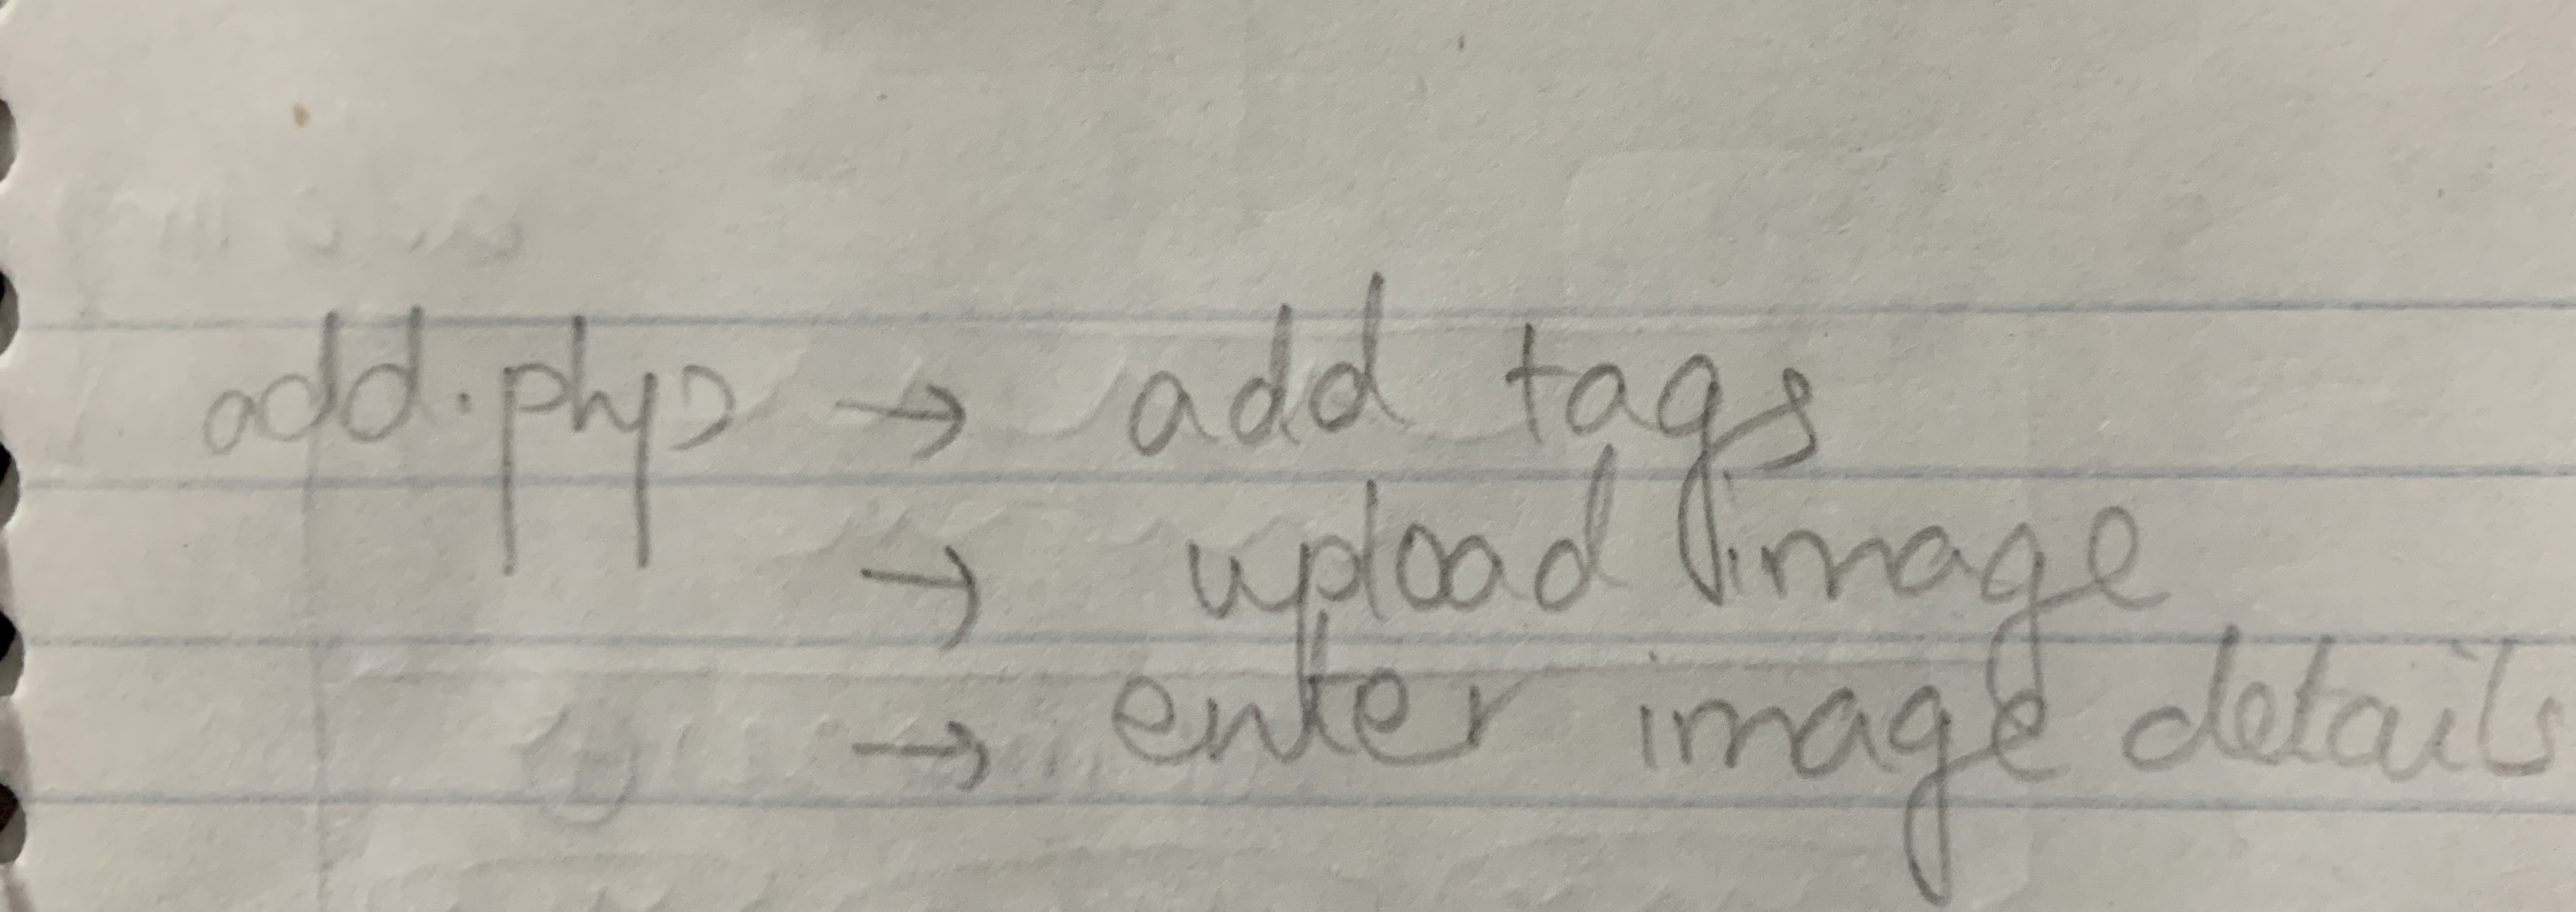 add.php → add tags
→ upload image
→ enter image details